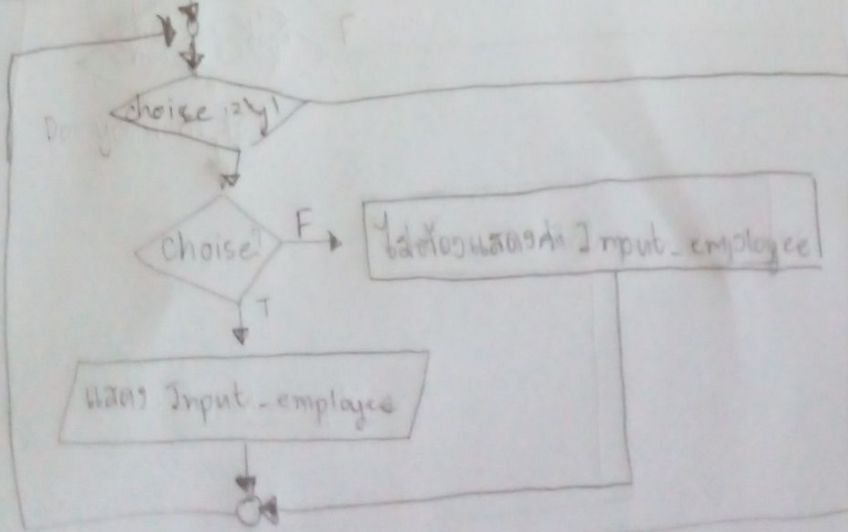 choise
choise?
F
ไม่ต้องแสดงค่า Input_employee
T
แสดง Input_employee